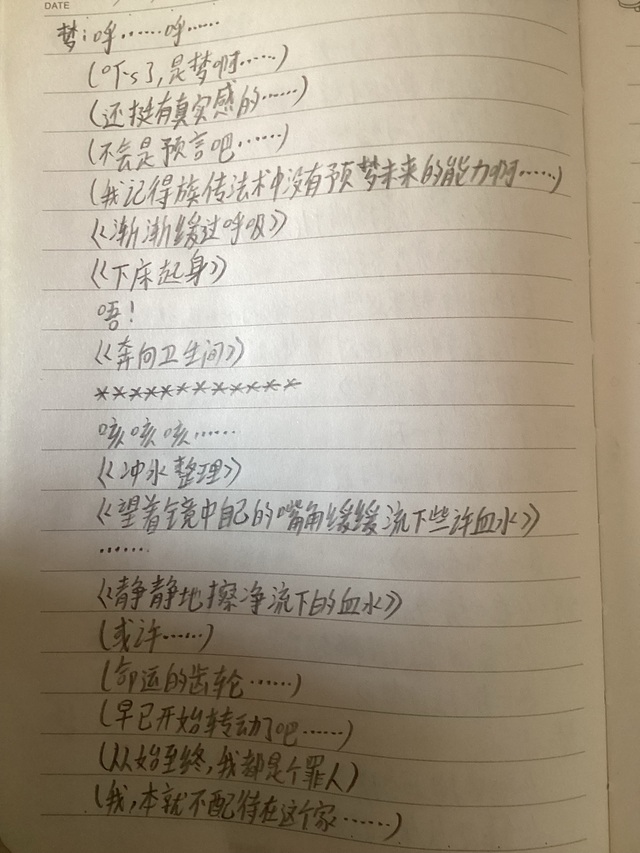 DATE
梦:呼……呼……
(吓s了,是梦啊……)
(还挺有真实感的……)
(不会是预言吧……)
(我记得族传法术中没有预梦未来的能力啊……)
《渐渐缓过呼吸》
《下床起身》
唔!
《奔向卫生间》
************
咳咳咳……
《冲水整理》
《望着镜中自己的嘴角缓缓流下些许血水》
……
《静静地擦净流下的血水》
(或许……)
(命运的齿轮……)
(早已开始转动了吧……)
(从始至终,我都是个罪人)
(我,本就不配待在这个家……)